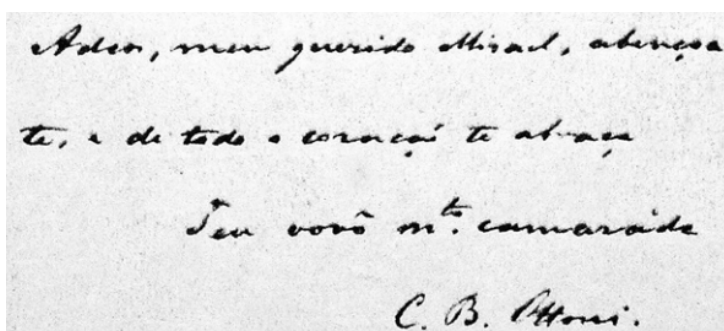 Adeos, meu querido Misael, abençoa
te, e de todo o coração te abraça
Teu vovô m.to camarada
C. B. Ottoni.